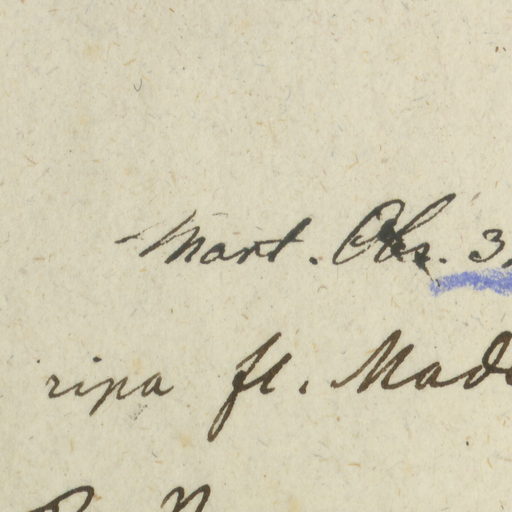 Mart. Obs. 3
ripa fl. Mad